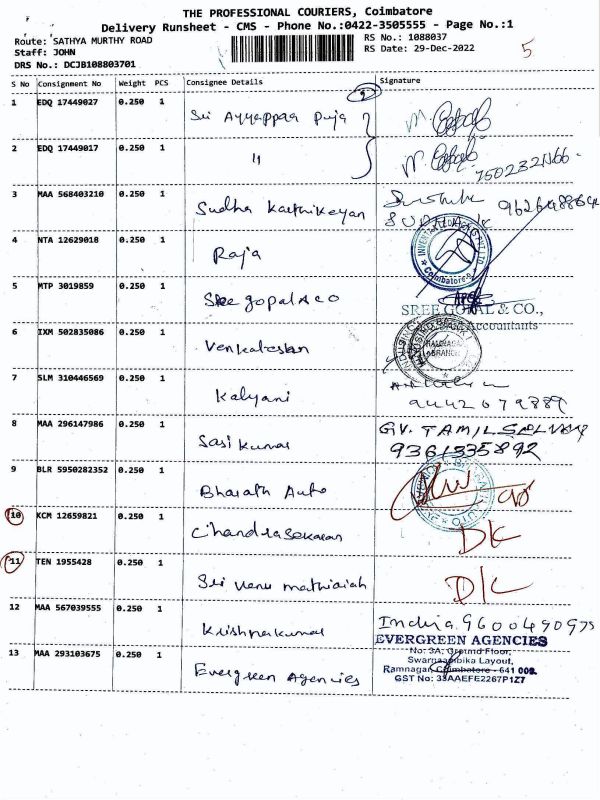 THE PROFESSIONAL COURIERS, Coimbatore
Delivery Runsheet - CMS - Phone No.:0422-3505555 - Page No.:1
Route: SATHYA MURTHY ROAD
RS No.: 1088037
Staff: JOHN
RS Date: 29-Dec-2022
5
DRS No.: DCJB108803701
S No Consignment No Weight PCS Consignee Details Signature
1 EDQ 17449027 0.250 1 Sri Ayyappaa Puja
2 EDQ 17449017 0.250 1 "
3 MAA 568403210 0.250 1 Sudha Karthikeyan
4 NTA 12629018 0.250 1 Raja
Coimbatore
5 MTP 3019859 0.250 1 Sree gopal & co
SREE GOPAL & CO.,
Accountants
6 IXM 502835086 0.250 1 Venkatesan
BRANCH
7 SLM 310446569 0.250 1 Kalyani
9442679889
8 MAA 296147986 0.250 1 Sasi kumar GV. TAMILSELVAN
9361335892
9 BLR 5950282352 0.250 1 Bharath Auto
10 KCM 12659821 0.250 1 Chandrasekaran DK
11 TEN 1955428 0.250 1 Sri venu mathiaiah D/C
12 MAA 567039555 0.250 1 Krishnakumar Indira 9600490975
EVERGREEN AGENCIES
13 MAA 293103675 0.250 1 Evergreen Agencies
No: 3A, Ground Floor,
Swarnaambika Layout,
Ramnagar, Coimbatore - 641 009.
GST No: 33AAEFE2267P1Z7